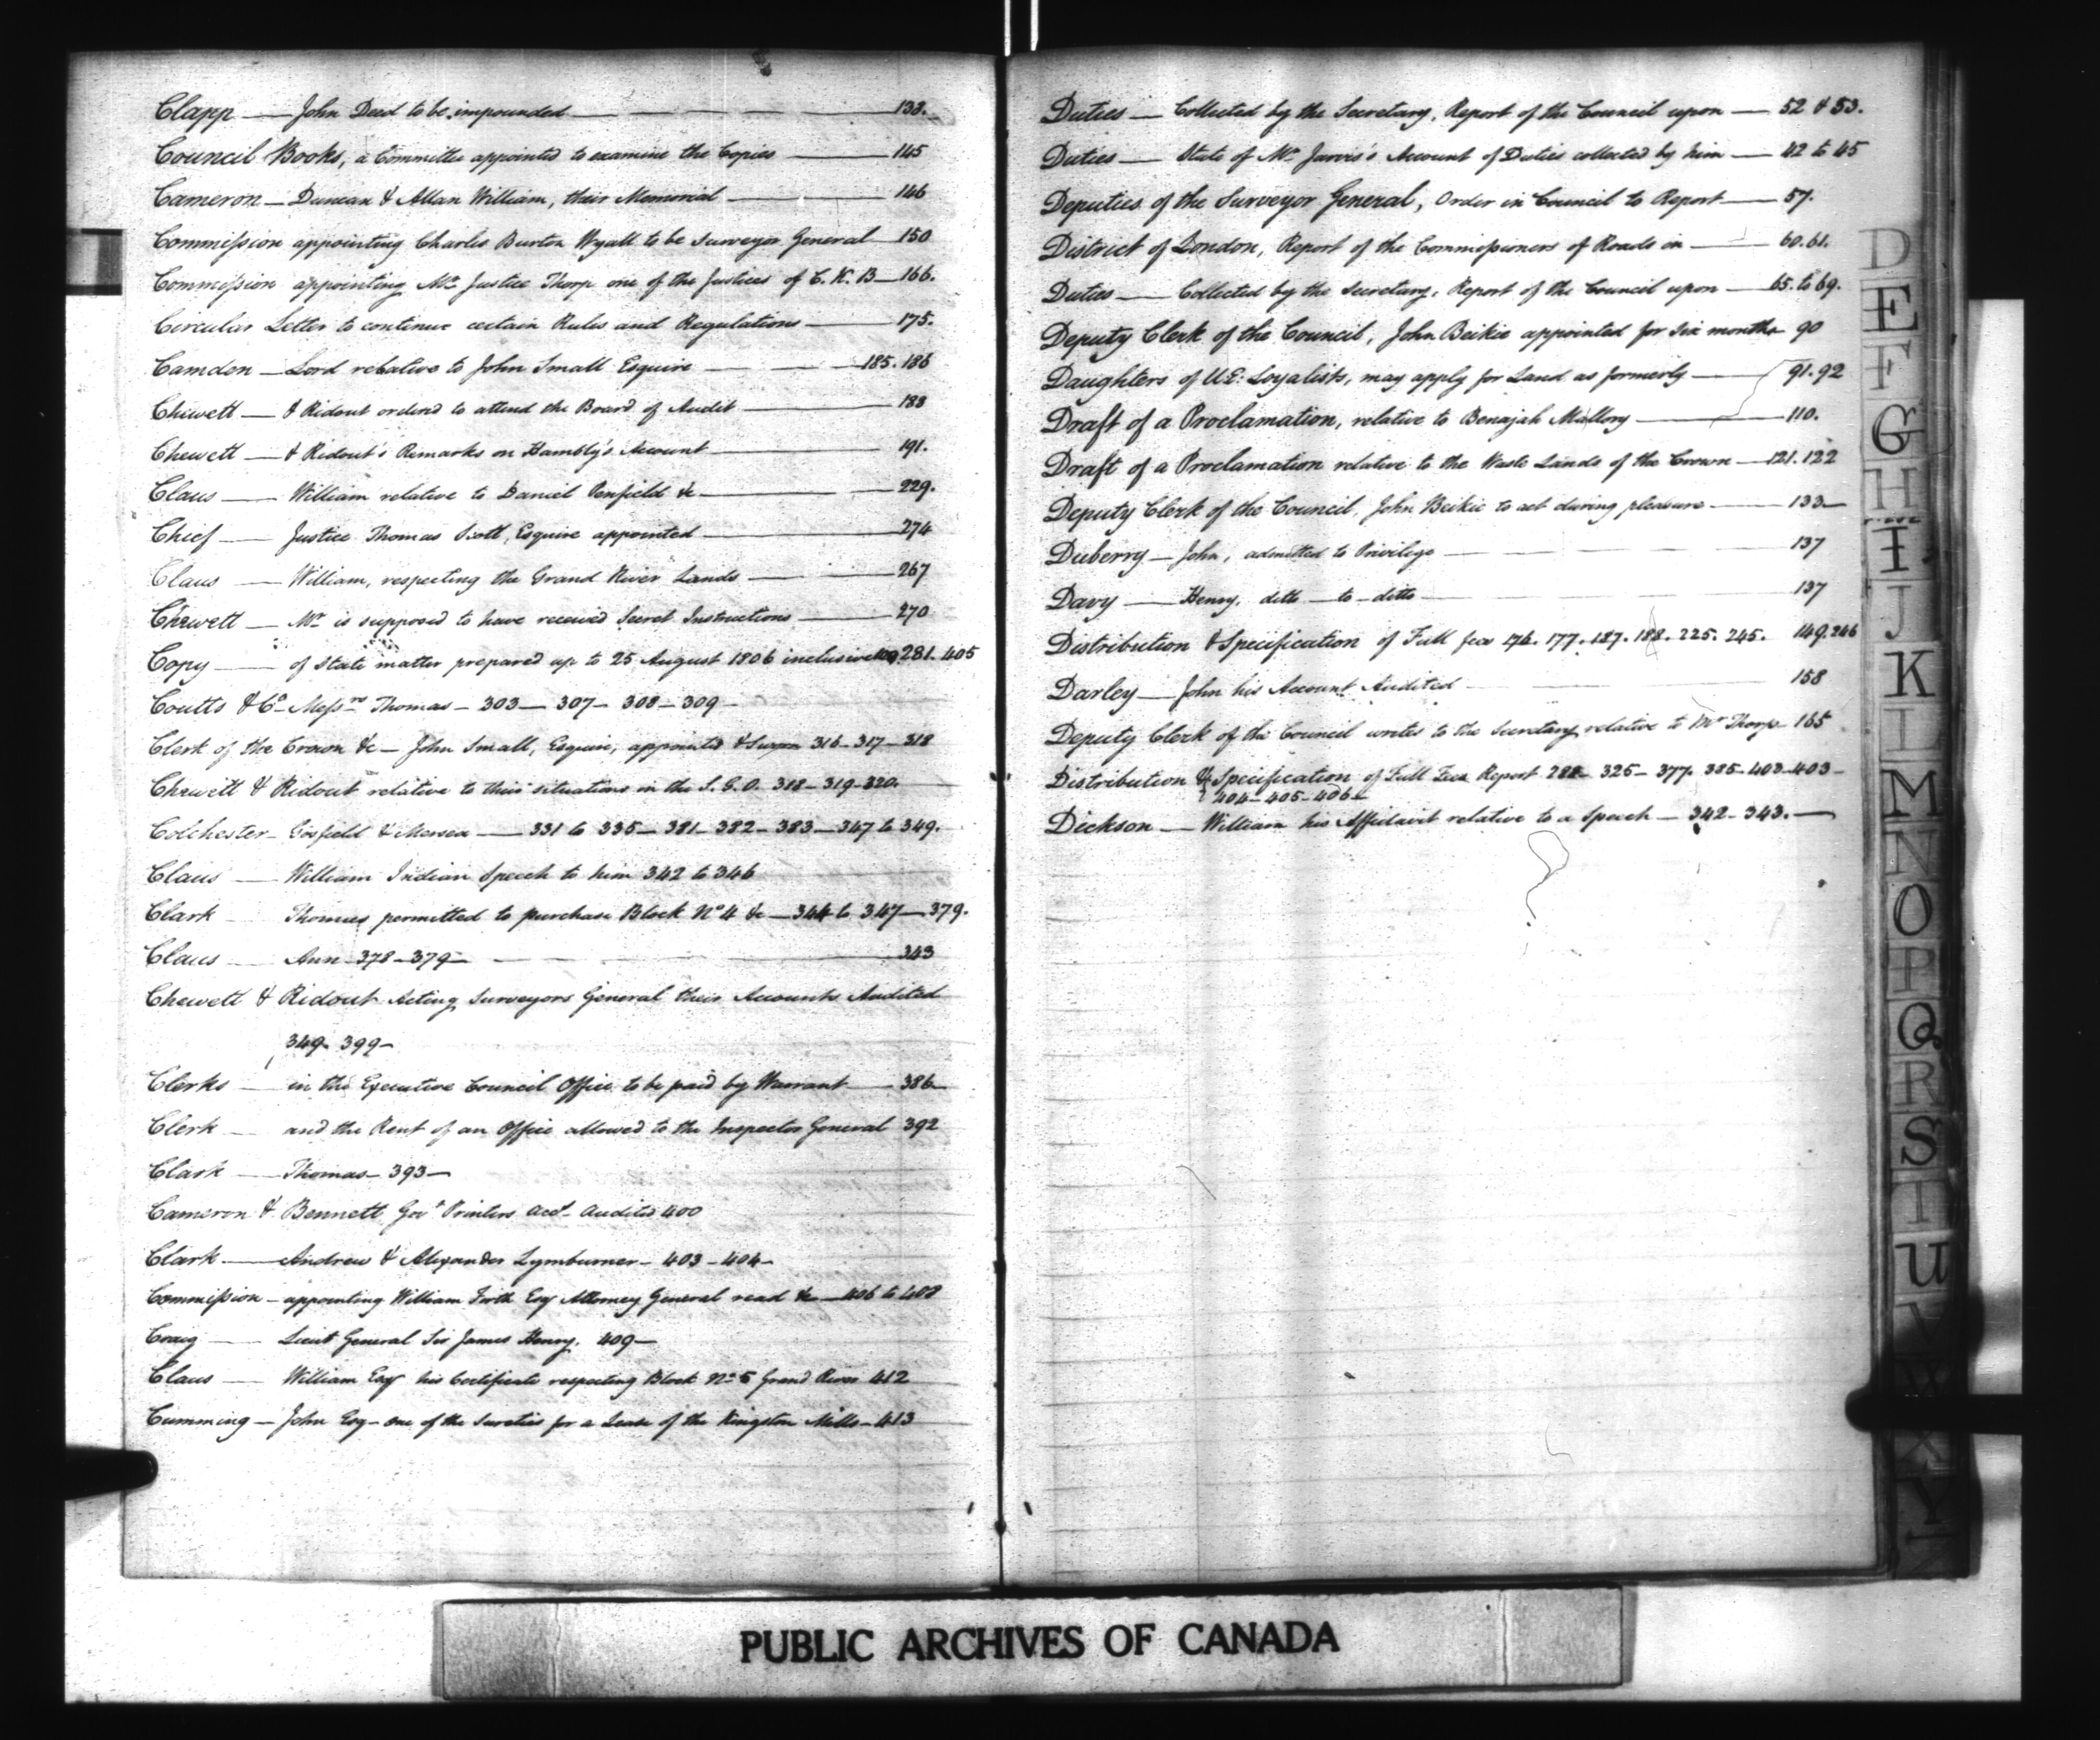 Clapp — John Deed to be impounded — 138.
Council Books, a Committee appointed to examine the Copies — 145
Cameron — Duncan & Allan William, their Memorial — 146
Commission appointing Charles Burton Wyatt to be Surveyor General — 150
Commission appointing Mr. Justice Thorp one of the Justices of C. K. B — 166.
Circular Letter to continue certain Rules and Regulations — 175.
Camden — Lord relative to John Small Esquire — 185. 186
Chewett — & Ridout orderd to attend the Board of Audit — 188
Chewett — & Ridout's Remarks on Hambly's Account — 191.
Claus — William relative to Daniel Penfield &c — 229.
Chief — Justice Thomas Scott, Esquire appointed — 274
Claus — William, respecting the Grand River Lands — 267
Chewett — Mr is supposed to have received Secret Instructions — 270
Copy — of State matter prepared up to 25 August 1806 inclusive 281. 405
Coutts & Co. Messrs Thomas — 303 — 307 — 308 — 309 —
Clerk of the Crown &c — John Small, Esquire, appointed & Sworn 316 — 317 — 318
Chewett & Ridout relative to their situations in the S. G. O. 318 — 319 — 320.
Colchester — Gosfield & Mersea — 331 to 335 — 381 — 382 — 383 — 347 to 349.
Claus — William Indian Speech to him 342 to 346
Clark — Thomas permitted to purchase Block No 4 &c — 344 to 347 — 379.
Claus — Ann 378 — 379 — 343
Chewett & Ridout Acting Surveyors General their Accounts Audited
349. 399 —
Clerks — in the Executive Council Office to be paid by Warrant — 386
Clerk — and the Rent of an Office allowed to the Inspector General 392
Clark — Thomas — 393 —
Cameron & Bennett Govt Printers acct audited 400
Clark — Andrew & Alexander Lymburner — 403 — 404 —
Commission — appointing William Firth Esq Attorney General read &c — 406 to 408
Craig — Lieut General Sir James Henry. 409 —
Claus — William Esqr his Certificate respecting Block No 5 Grand River 412
Cumming — John Esq — one of the Sureties for a Lease of the Kingston Mills — 413
Duties — Collected by the Secretary, Report of the Council upon — 52 & 53.
Duties — State of Mr Jarvis's Account of Duties collected by him — 42 to 45
Deputies of the Surveyor General, Order in Council to Report — 57.
District of London, Report of the Commissioners of Roads in — 60. 61.
Duties — Collected by the Secretary, Report of the Council upon — 65. to 69.
Deputy Clerk of the Council, John Beikie appointed for six months 90
Daughters of U.E: Loyalists, may apply for Land as formerly — 91. 92
Draft of a Proclamation, relative to Benajah Mallory — 110.
Draft of a Proclamation relative to the Waste Lands of the Crown — 121. 122
Deputy Clerk of the Council, John Beikie to act during pleasure — 133 —
Duberry — John, admitted to Privilege — 137
Davy — Henry, ditto — to — ditto — 137
Distribution & Specification of Full fees 176. 177. 187. 188. 225. 245. 149. 246
Darley — John his Account Audited — 158
Deputy Clerk of the Council writes to the Secretary relative to Mr Thorp 165
Distribution & Specification of Full Fees Report 288 — 325 — 377. 385 — 403 — 403 —
404 — 405 — 406 —
Dickson — William his Affidavit relative to a Speech — 342 — 343. —
D
E
F
G
H
I
J
K
L
M
N
O
P
Q
R
S
T
U
V
W
X
Y
Z
PUBLIC ARCHIVES OF CANADA